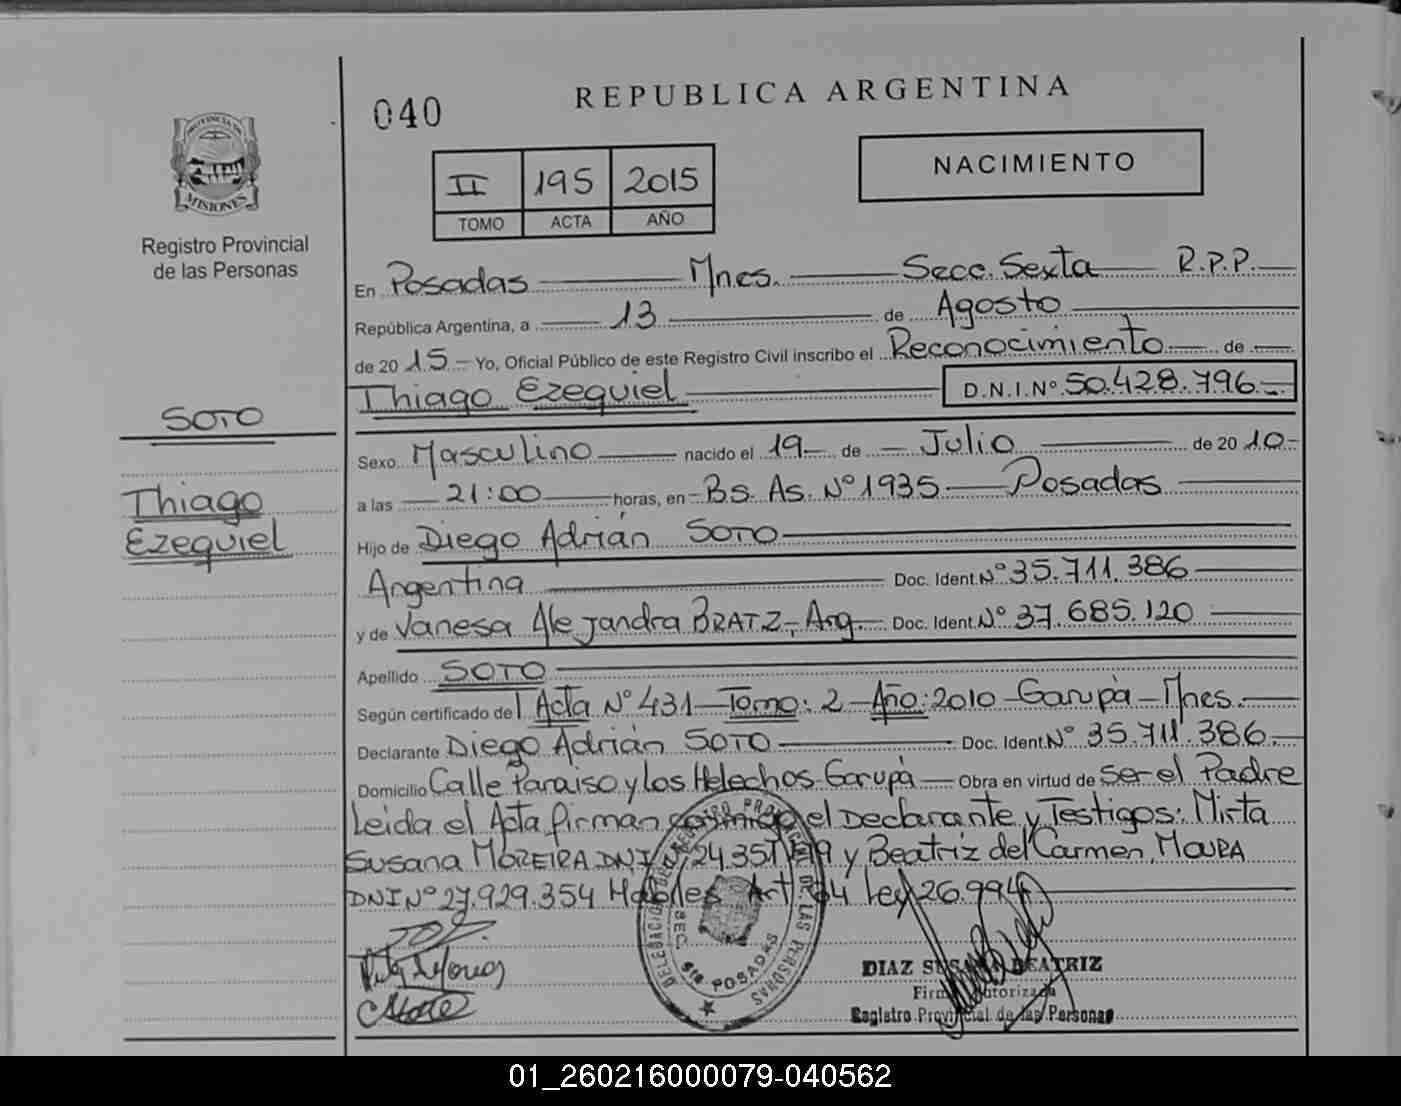 040
REPUBLICA ARGENTINA
NACIMIENTO
II 195 2015
TOMO ACTA AÑO
PROVINCIA DE
MISIONES
Registro Provincial
de las Personas
SOTO
Thiago
Ezequiel
En Posadas Mnes. Secc. Sexta R.P.P.
República Argentina, a 13 de Agosto
de 2015 Yo, Oficial Público de este Registro Civil inscribo el Reconocimiento de
Thiago Ezequiel D.N.I.Nº 50.428.796
Sexo Masculino nacido el 19 de Julio de 2010
a las 21:00 horas, en Bs. As. Nº 1935 Posadas
Hijo de Diego Adrián SOTO
Argentina Doc. Ident. Nº 35.711.386
y de Vanesa Alejandra BRATZ, Arg. Doc. Ident. Nº 37.685.120
Apellido SOTO
Según certificado del Acta Nº 431 Tomo: 2 Año: 2010 Garupà Mnes.
Declarante Diego Adrián SOTO Doc. Ident. Nº 35.711.386
Domicilio Calle Paraiso y los Helechos Garupà Obra en virtud de ser el Padre
Leida el Acta firman conmigo el Declarante y Testigos: Mirta
Susana MOREIRA DNI y Beatriz del Carmen MOURA
DNI Nº 27.929.354 Habiles Art. 64 Ley 26.994
DIAZ SUSANA BEATRIZ
Firma Autorizada
Registro Provincial de las Personas
POSADAS
01_260216000079-040562